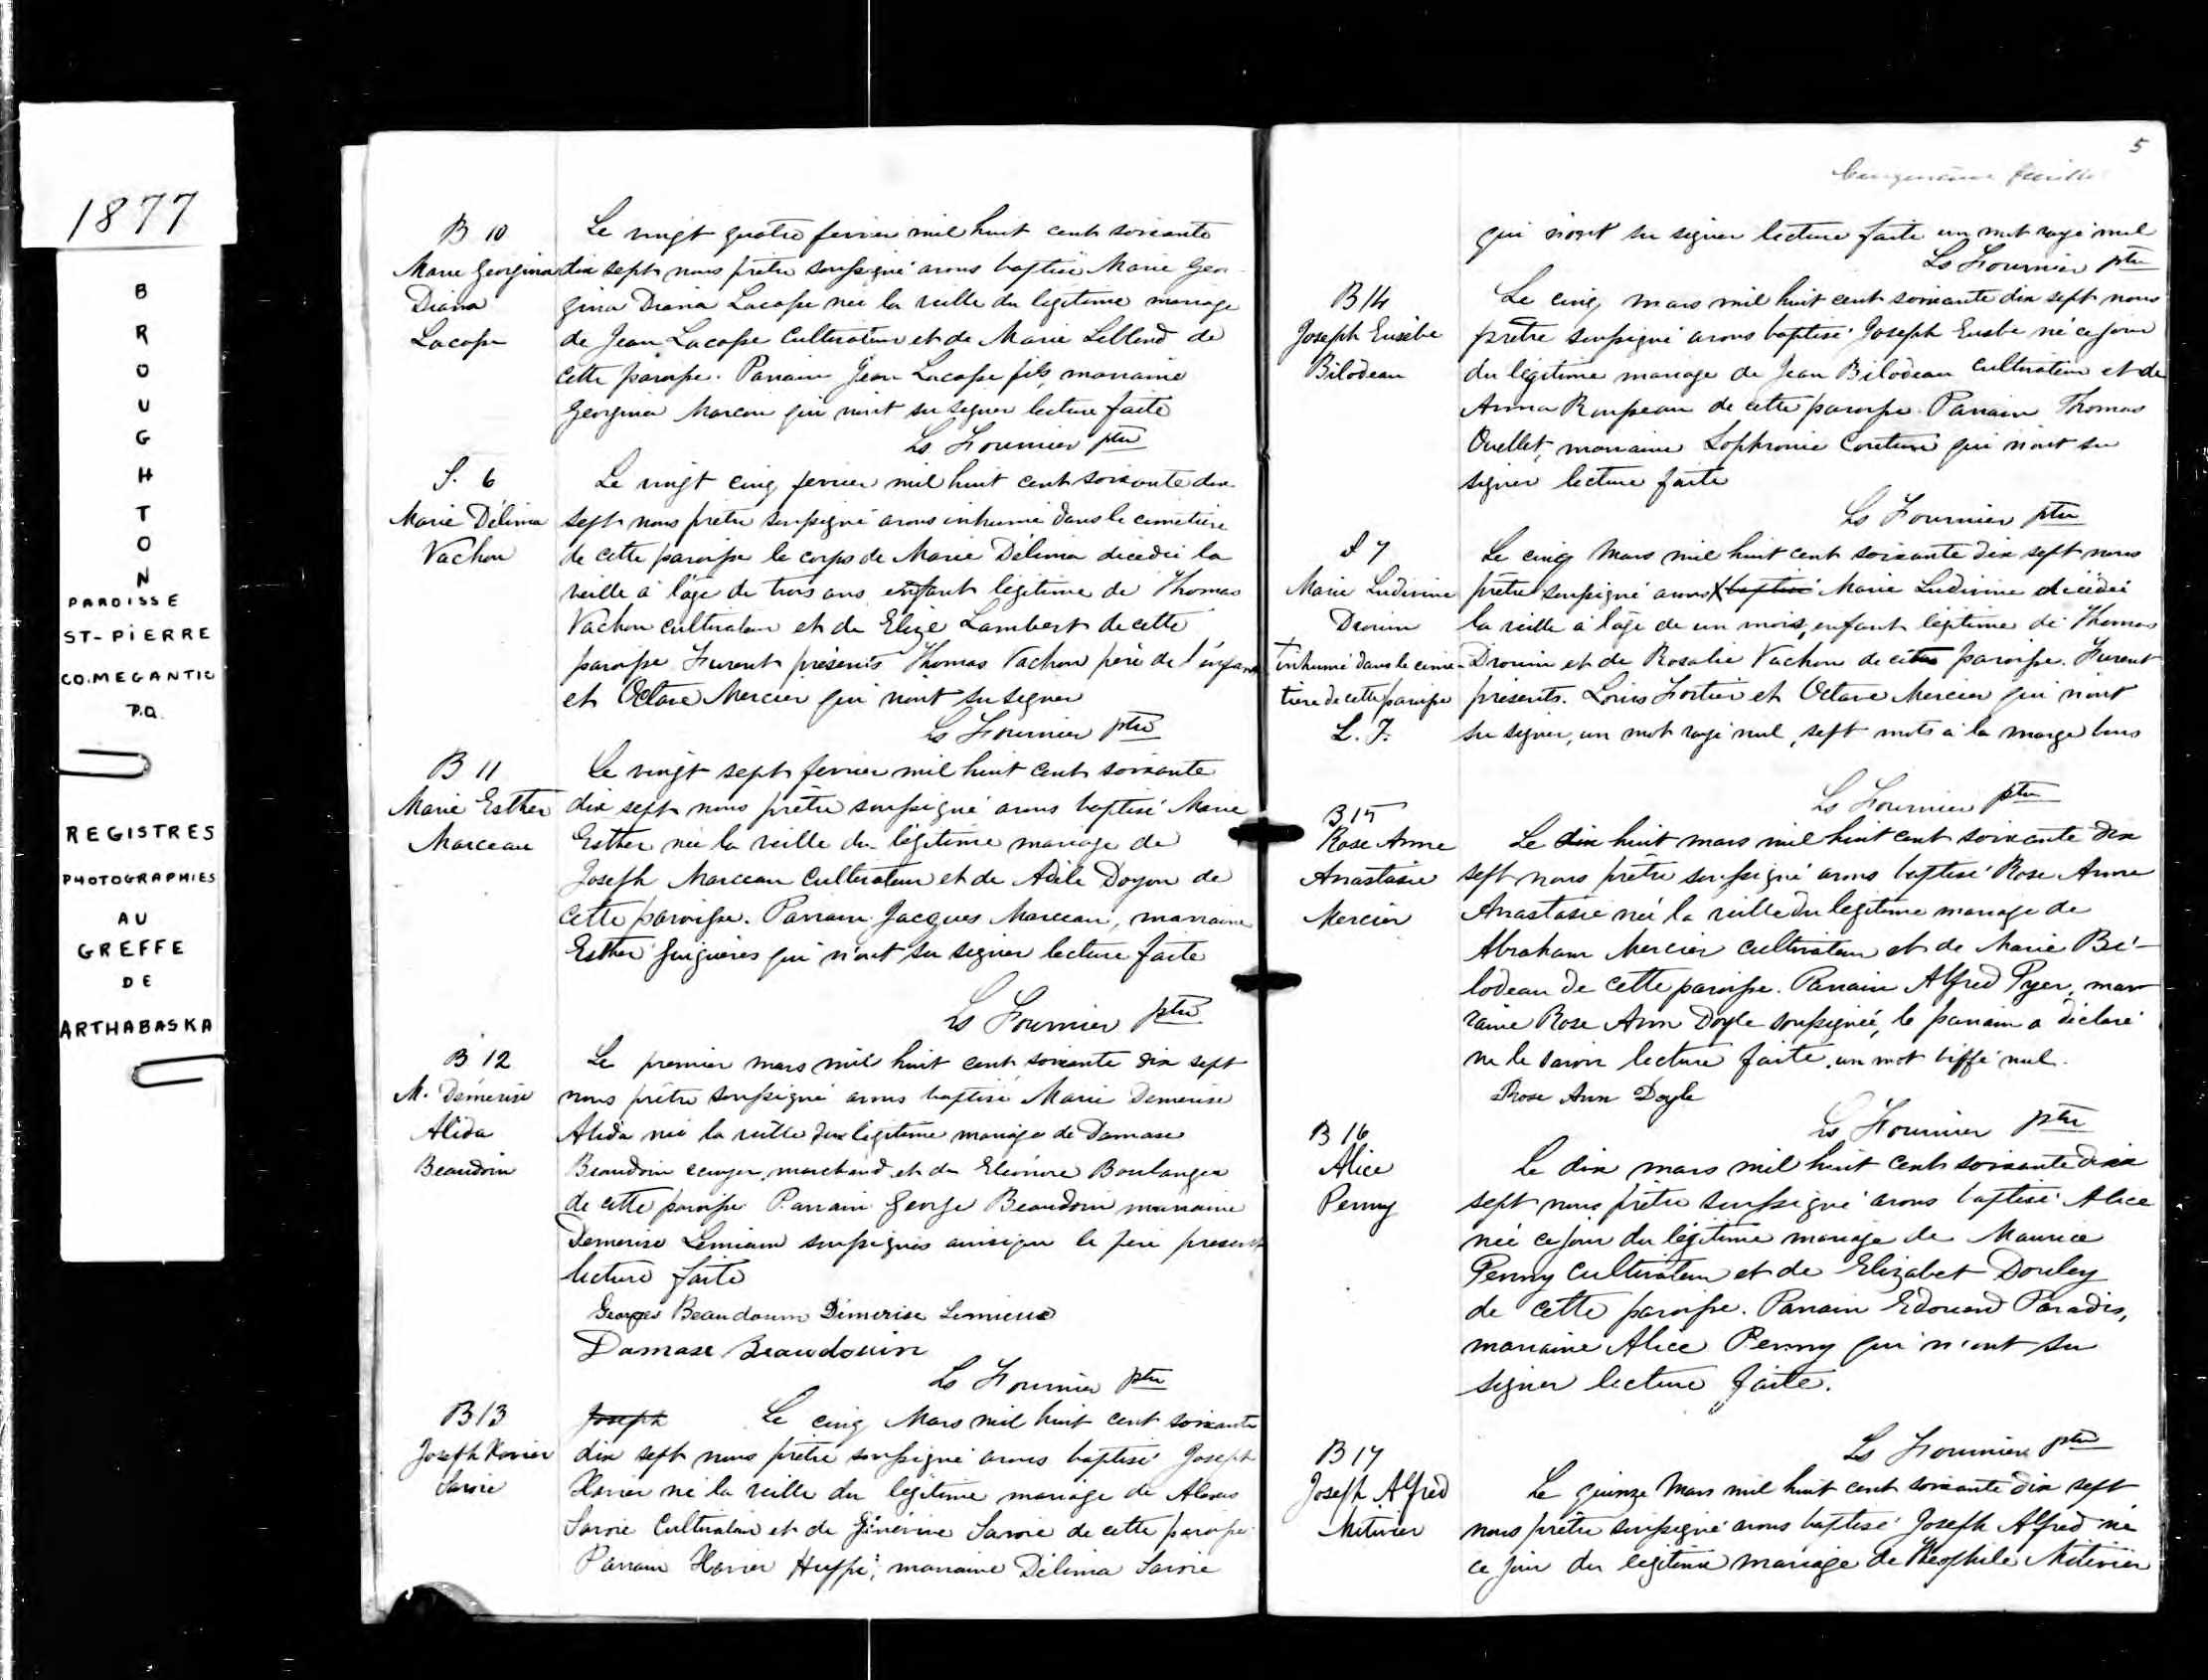 1877
BROUGHTON
PAROISSE
ST-PIERRE
CO.MEGANTIC
P.Q.
REGISTRES
PHOTOGRAPHIES
AU
GREFFE
DE
ARTHABASKA
B 10
Marie Georgina
Diana
Lacasse
Le vingt quatre fevrier mil huit cent soixante
dix sept nous prêtre soussigné avons baptisé Marie Geor
gina Diana Lacasse née la veille du légitime mariage
de Jean Lacasse cultivateur et de Marie Leblond de
cette paroisse. Parrain Jean Lacasse fils, marraine
Georgina Marcou qui n'ont su signer lecture faite
Ls Fournier ptre
S. 6
Marie Délima
Vachon
Le vingt cinq fevrier mil huit cent soixante dix
sept nous prêtre soussigné avons inhumé dans le cimetière
de cette paroisse le corps de Marie Délima décédée la
veille à l'âge de trois ans enfant légitime de Thomas
Vachon cultivateur et de Elize Lambert de cette
paroisse Furent présents Thomas Vachon père de l'enfant
et Octave Mercier qui n'ont su signer
Ls Fournier ptre
B 11
Marie Esther
Marceau
Le vingt sept fevrier mil huit cent soixante
dix sept nous prêtre soussigné avons baptisé Marie
Esther née la veille du légitime mariage de
Joseph Marceau cultivateur et de Adèle Doyon de
cette paroisse. Parrain Jacques Marceau, marraine
Esther qui n'ont su signer lecture faite
Ls Fournier ptre
B 12
M. Démerise
Alida
Beaudoin
Le premier mars mil huit cent soixante dix sept
nous prêtre soussigné avons baptisé Marie Démerise
Alida née la veille du légitime mariage de Damase
Beaudoin ecuyer, marchand et de Eléonore Boulanger
de cette paroisse Parrain George Beaudoin marraine
Demerise Lemieux soussignés ainsi que le père present
lecture faite
Georges Beaudouin Démerise Lemieux
Damase Beaudouin
Ls Fournier ptre
B 13
Joseph Xavier
Savoie
Joseph Le cinq Mars mil huit cent soixante
dix sept nous prêtre soussigné avons baptisé Joseph
Xavier né la veille du légitime mariage de Alexis
Savoie Cultivateur et de Généviève Savoie de cette paroisse
Parrain Xavier Huppé, marraine Délima Savoie
5
Cinquième feuille
qui n'ont su signer lecture faite un mot rayé nul
Ls Fournier ptre
B 14
Joseph Eusèbe
Bilodeau
Le cinq mars mil huit cent soixante dix sept nous
prêtre soussigné avons baptisé Joseph Eusbe né ce jour
du légitime mariage de Jean Bilodeau cultivateur et de
Anna Rousseau de cette paroisse. Parrain Thomas
Ouellet, marraine Sophronie Couture qui n'ont su
signer lecture faite
Ls Fournier ptre
S 7
Marie Ludivine
Drouin
+inhumé dans le cime-
tière de cette paroisse
L. F.
Le cinq Mars mil huit cent soixante dix sept nous
prêtre soussigné avons X baptisé Marie Ludivine décédée
la veille à l'âge de un mois, enfant légitime de Thomas
Drouin et de Rosalie Vachon de cette paroisse. Furent
présents. Louis Fortier et Octave Mercier qui n'ont
su signer, un mot rayé nul, sept mots à la marge bons
Ls Fournier ptre
B 15
Rose Anne
Anastasie
Mercier
Le dix huit mars mil huit cent soixante dix
sept nous prêtre soussigné avons baptisé Rose Anne
Anastasie née la veille du légitime mariage de
Abraham Mercier cultivateur et de Marie Bi-
lodeau de cette paroisse. Parrain Alfred Pyer, mar
raine Rose Ann Doyle soussignée, le parrain a déclaré
ne le savoir lecture faite, un mot biffé nul.
Rose Ann Doyle
Ls Fournier ptre
B 16
Alice
Penny
Le dix mars mil huit cent soixante dix
sept nous prêtre soussigné avons baptisé Alice
née ce jour du légitime mariage de Maurice
Penny cultivateur et de Elizabet Donley
de cette paroisse. Parrain Edouard Paradis,
marraine Alice Penny qui n'ont su
signer lecture faite.
Ls Fournier ptre
B 17
Joseph Alfred
Mitivier
Le quinze Mars mil huit cent soixante dix sept
nous prêtre soussigné avons baptisé Joseph Alfred né
ce jour du légitime mariage de Théophile Mitivier